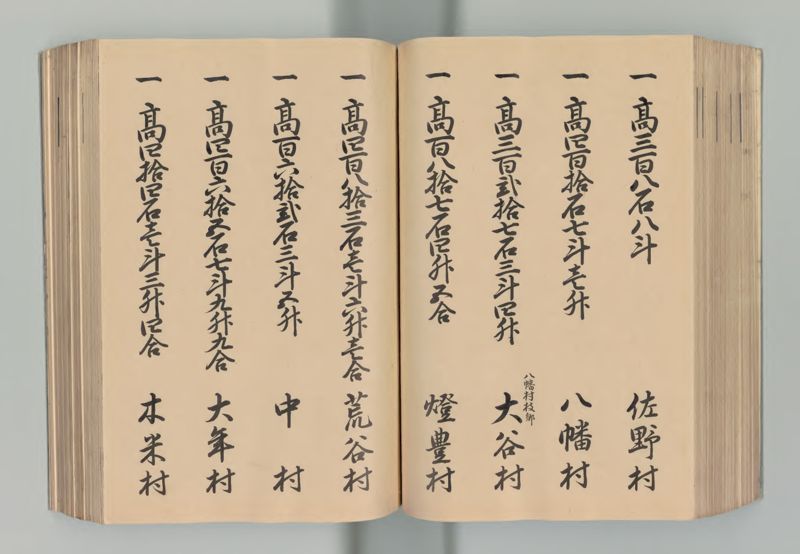 一 高三百八石八斗 佐野村
一 高四百拾石七斗壱升 八幡村
八幡村枝郷
一 高三百弐拾七石三斗四升 大谷村
一 高百八拾七石四升五合 燈豊村
一 高四百八拾三石壱斗六升壱合 荒谷村
一 高百六拾弐石三斗五升 中村
一 高四百六拾五石七斗九升九合 大年村
一 高四拾四石壱斗三升四合 木米村